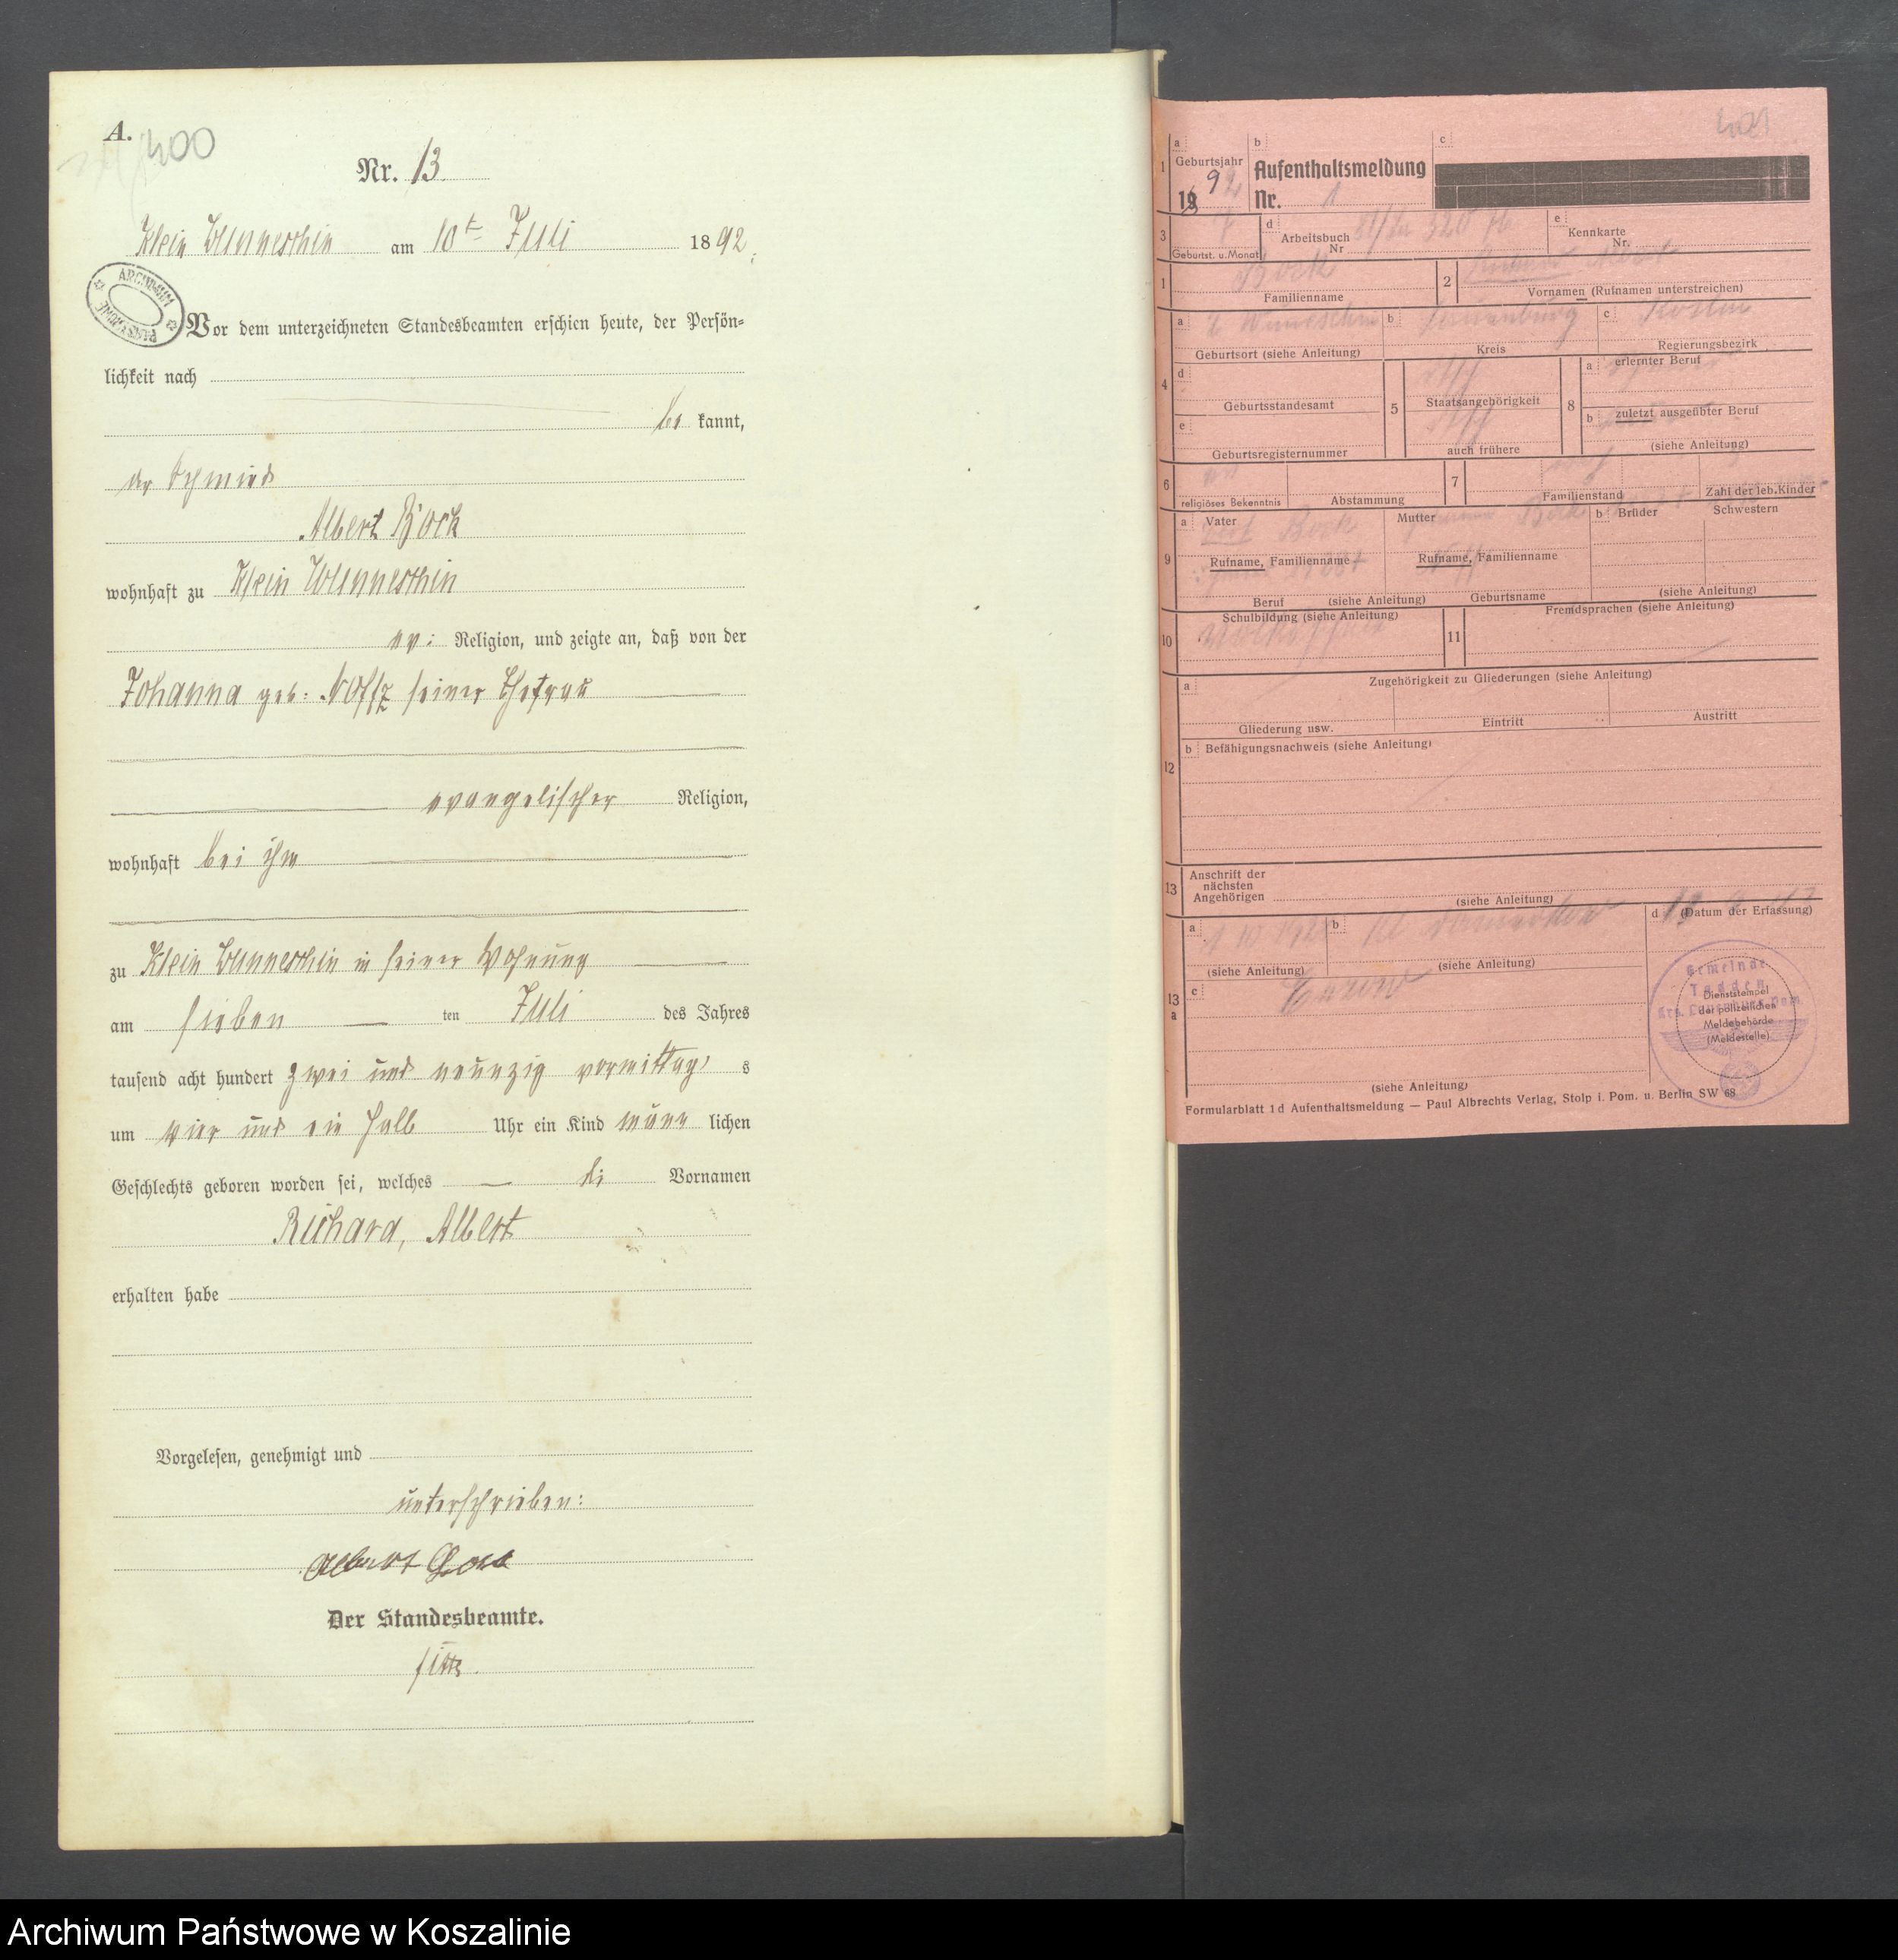 A.
400
Nr. 13
Klein Wunneschin am 10ten Juli 1892.
ARCHIWUM PAŃSTWOWE
Vor dem unterzeichneten Standesbeamten erschien heute, der Persön=
lichkeit nach
be kannt,
der Schmied
Albert Bock
wohnhaft zu Klein Wunneschin
ev: Religion, und zeigte an, daß von der
Johanna geb: Noffz seiner Ehefrau
evangelischer Religion,
wohnhaft bei ihm
zu Klein Wunneschin in seiner Wohnung
am sieben ten Juli des Jahres
tausend acht hundert zwei und neunzig vormittag s
um vier und ein halb Uhr ein Kind männ lichen
Geschlechts geboren worden sei, welches die Vornamen
Richard, Albert
erhalten habe
Vorgelesen, genehmigt und
unterschrieben:
Albert Bock
Der Standesbeamte.
401
a b c
1 Geburtsjahr Aufenthaltsmeldung
92 Nr. 1
3 d Arbeitsbuch Nr e Kennkarte Nr.
Geburtst. u. Monat
1 Bock 2 Albert
Familienname Vornamen (Rufnamen unterstreichen)
a b Lauenburg c Köslin
Geburtsort (siehe Anleitung) Kreis Regierungsbezirk
4 d 5 8 a erlernter Beruf
Geburtsstandesamt Staatsangehörigkeit
e b zuletzt ausgeübter Beruf
Geburtsregisternummer auch frühere (siehe Anleitung)
6 7
religiöses Bekenntnis Abstammung Familienstand Zahl der leb. Kinder
9 a Vater Bock Mutter Bock b Brüder Schwestern
Rufname, Familienname Rufname, Familienname
Beruf (siehe Anleitung) Geburtsname (siehe Anleitung)
10 Schulbildung (siehe Anleitung) 11 Fremdsprachen (siehe Anleitung)
12 a Zugehörigkeit zu Gliederungen (siehe Anleitung)
Gliederung usw. Eintritt Austritt
b Befähigungsnachweis (siehe Anleitung)
13 Anschrift der nächsten Angehörigen (siehe Anleitung)
13 a a b d (Datum der Erfassung)
(siehe Anleitung) (siehe Anleitung)
c
Gemeinde
Tadden
Krs. Lauenburg Pom.
Dienststempel
der polizeilichen
Meldebehörde
(Meldestelle)
(siehe Anleitung)
Formularblatt 1 d Aufenthaltsmeldung — Paul Albrechts Verlag, Stolp i. Pom. u. Berlin SW 68
Archiwum Państwowe w Koszalinie